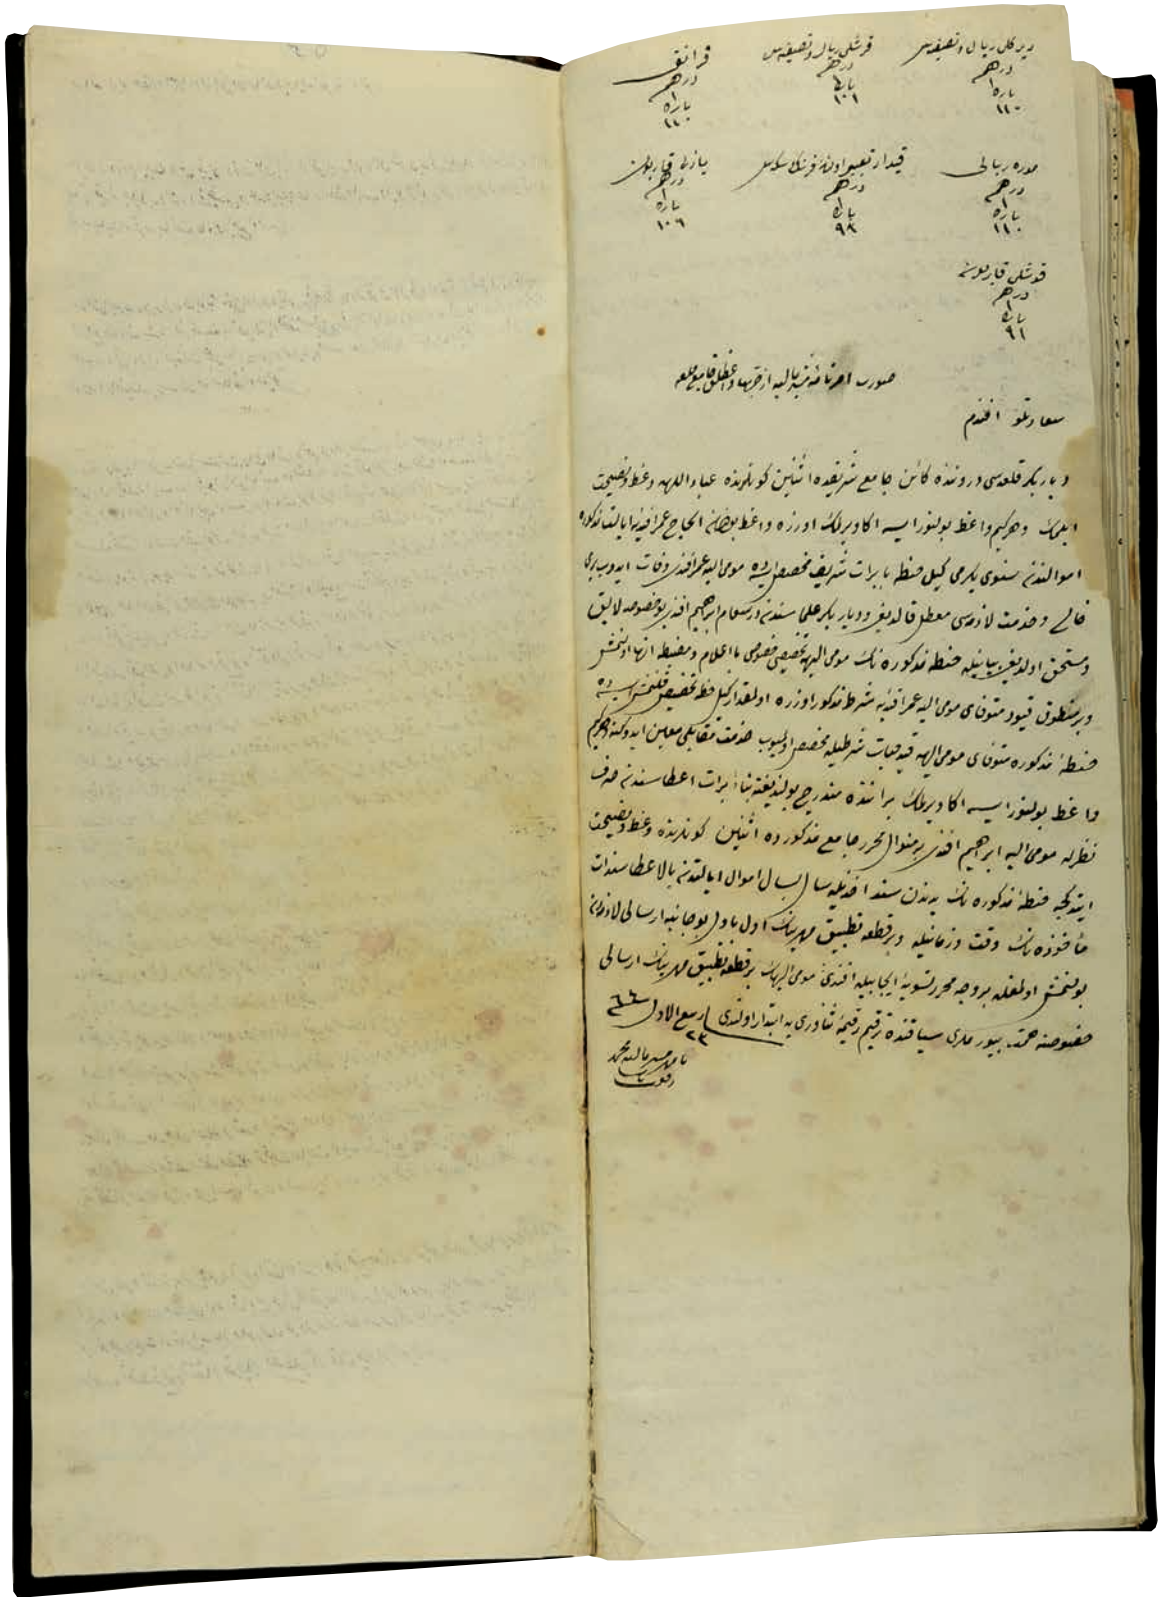 دیركلی ریال و نصفیه‌سی
درهم
١
پاره
١١٠
قوشلی ریال و نصفیه‌سی
درهم
١
پاره
١٠١
فرانق
درهم
١
پاره
١١٠
موره ریالی
درهم
١
پاره
١١٠
قیدار تعبیر اولنان فرنك سكه‌سی
درهم
١
پاره
٩٨
یازلی قاربون
درهم
١
پاره
١٠٦
قوشلی قاربونه
درهم
١
پاره
٩١
صورت امرنامهٔ
سعادتلو افندم
دیاربكر قلعه‌سی دروننده كائن جامع شریفده اثنین كونلرنده عباد اللهه وعظ و نصیحت
ایلمك و هركیم واعظ بولنور ایسه اكا ویرلمك اوزره واعظ بولنان الحاج عمر افندیه ایالت مذكوره
اموالندن سنوی یكرمی كیل حنطه با برات شریف مخصص ایسه‌ده مومی الیه عمر افندی وفات ایدوب یری
خالی و خدمت لازمه‌سی معطل قالدیغی و دیاربكر علماسندن درسعام ابراهیم افندی بو خصوصه لایق
و مستحق اولدیغی بیانیله حنطه مذكوره‌نك مومی الیهه تخصیصی خصوصی با اعلام و مضبطه انها اولنمش
و بر منطوق قیود متوفای مومی الیه عمر افندیه شرط مذكور اوزره اولمقدار كیل حنطه تخصیص قلنمش ایسه‌ده
حنطهٔ مذكوره متوفای مومی الیهه قید حیات شرطیله مخصص اولمیوب خدمت مقابلی معین ایدوكنه و هركیم
واعظ بولنور ایسه اكا ویرلمك براتنده مندرج بولندیغنه بناءً برات اعطاسندن صرف
نظرله مومی الیه ابراهیم افندی بر منوال محرر جامع مذكورده اثنین كونلرنده وعظ و نصیحت
ایتدكجه حنطهٔ مذكوره‌نك یدندن سند اخذیله سال بسال اموال ایالتدن بالاعطا سندات
مأخوذه‌نك وقت و زمانیله و بر قطعه تطبیق مهرینك اول باول بو جانبه ارسالی لازمدن
بولنمش اولمغله بر وجه محرر تسویهٔ ایجابیله افندیٔ مومی الیهك بر قطعه تطبیق مهرینك ارسالی
خصوصنه همت بیورملری سیاقنده ترقیم رقیمهٔ ثناوری یه ابتدار اولندی ٢٣ ربیع الاول سنه ٦٦